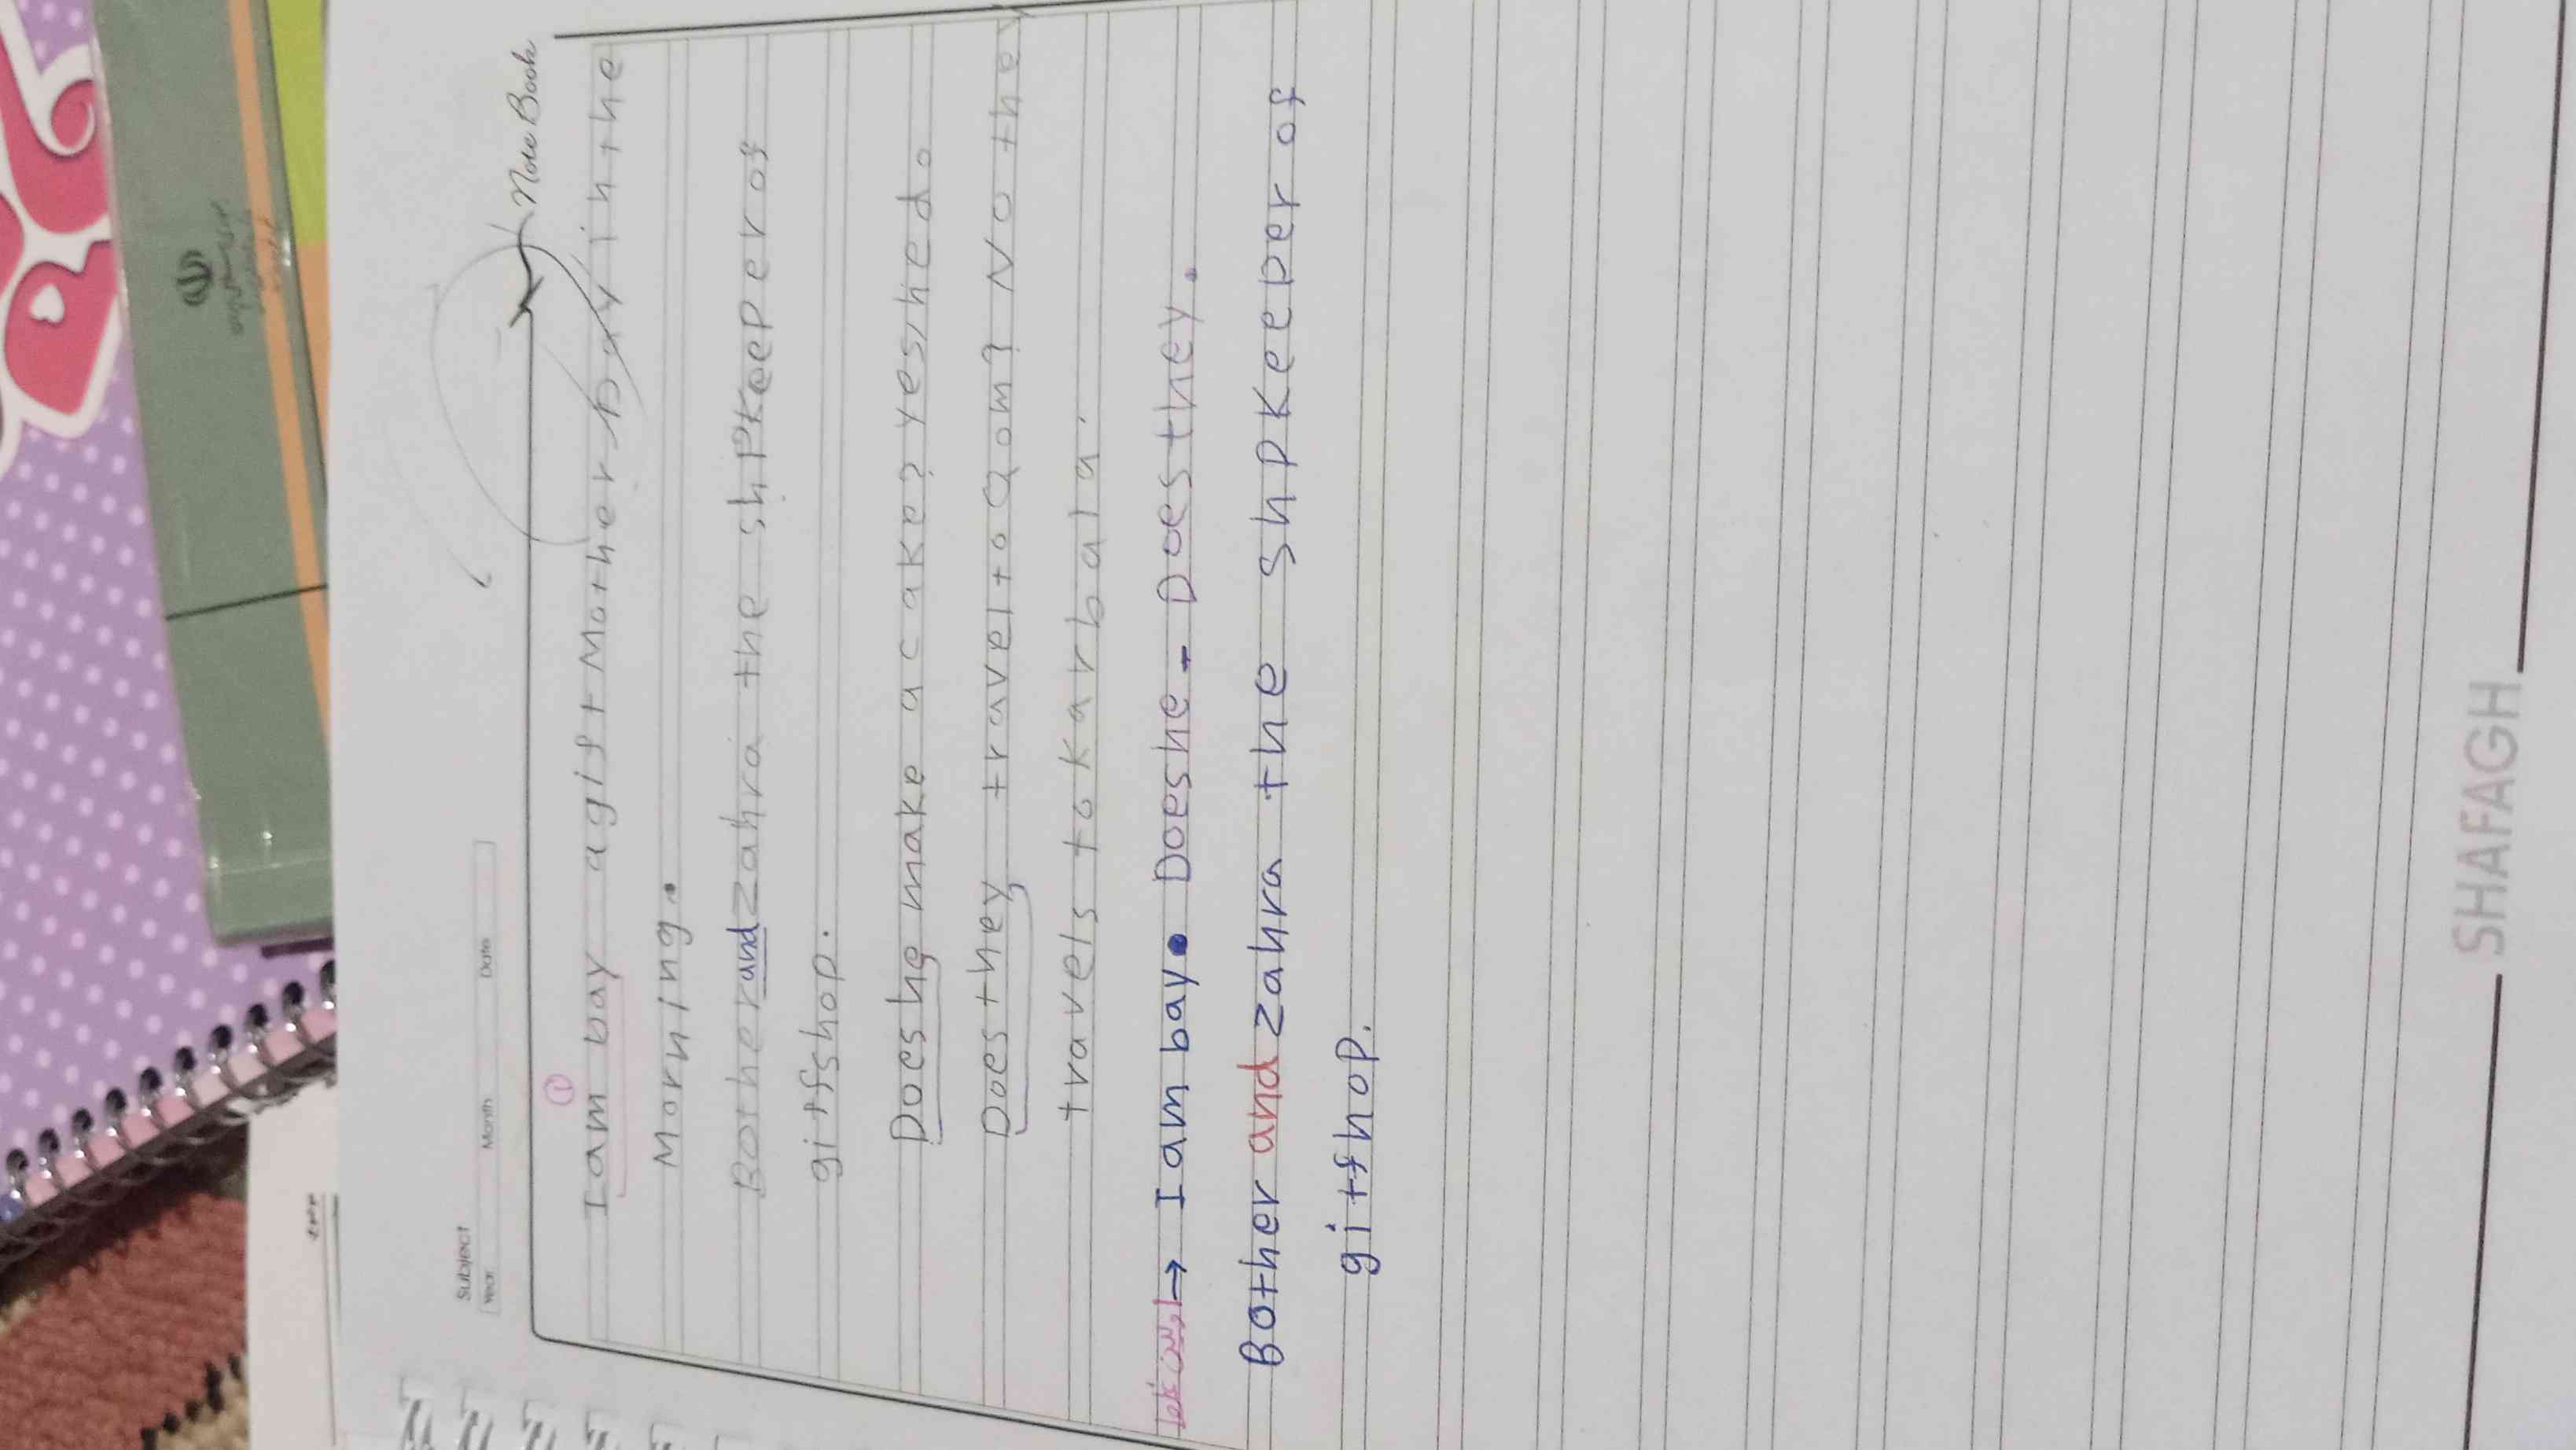 Subject
Year Month Date
Note Book
①
I am bay a gift Mother bay in the
Morning.
Bother and zahra the shPkeeper of
giffshop.
Does he make a cake? Yes, he d.
Does they travel to Qom? No they
travels to karbala.
→ I am bay. Does he - Does they.
Bother and zahra the shpkeeper of
gitfhop.
SHAFAGH